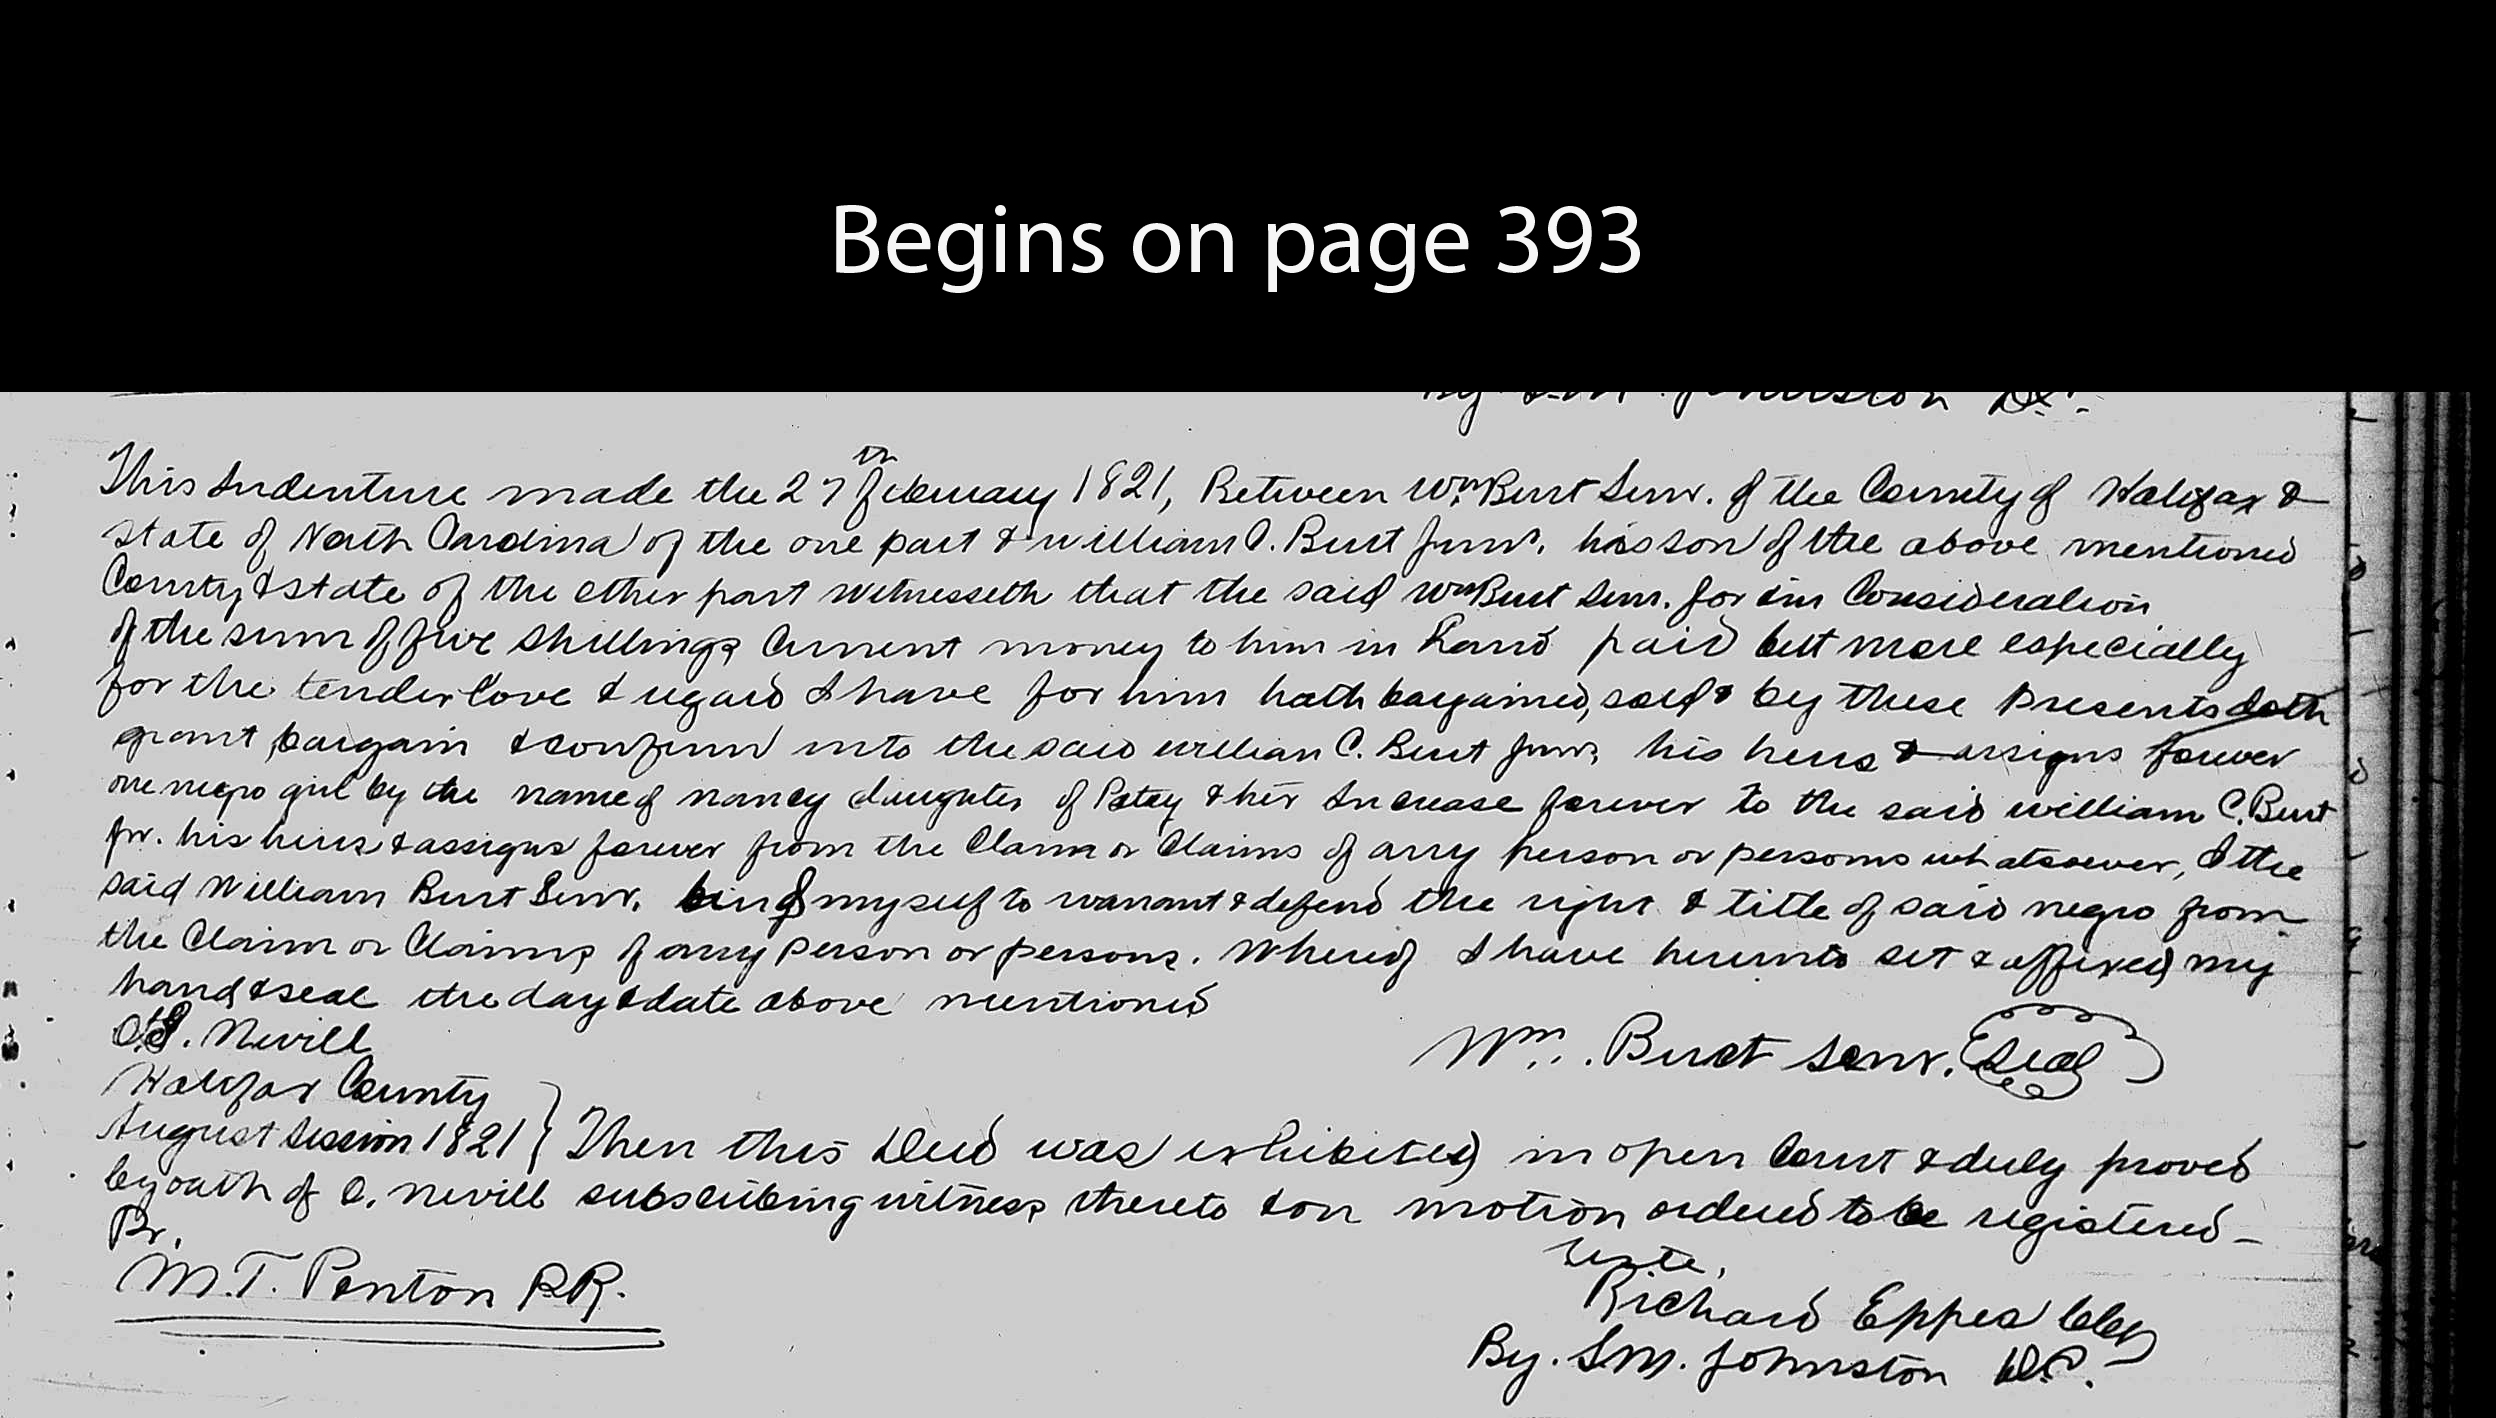 Begins on page 393
This Indenture made the 27th February 1821, Between Wm. Burt Senr. of the County of Halifax &
State of North Carolina of the one part & William C. Burt Junr. his son of the above mentioned
County & state of the other part Witnesseth that the said Wm Burt Senr. for & in Consideration
of the sum of five Shillings Current money to him in hand paid but more especially
for the tender love & regard I have for him hath bargained, sold & by these Presents doth
grant, bargain & confirm unto the said William C. Burt Junr. his heirs & assigns forever
one negro girl by the name of nancy daughter of Patsy & her Increase forever to the said William C. Burt
Jr. his heirs & assigns forever from the Claim or Claims of any person or persons whatsoever, I the
said William Burt Senr. bind myself to warrant & defend the right & title of said negro from
the Claim or Claims of any person or persons. Whereof I have hereunto set & affixed my
hand & seal the day & date above mentioned
Nevill
Wm. Burt Senr. Seal
Halifax County
August Session 1821 } Then this Deed was exhibited in open Court & duly proved
by oath of O. Nevill subscribing witness thereto & on motion ordered to be registered -
Pr.
M.T. Ponton P.R.
Teste,
Richard Eppes Clk
By. S.M. Johnston D.C.